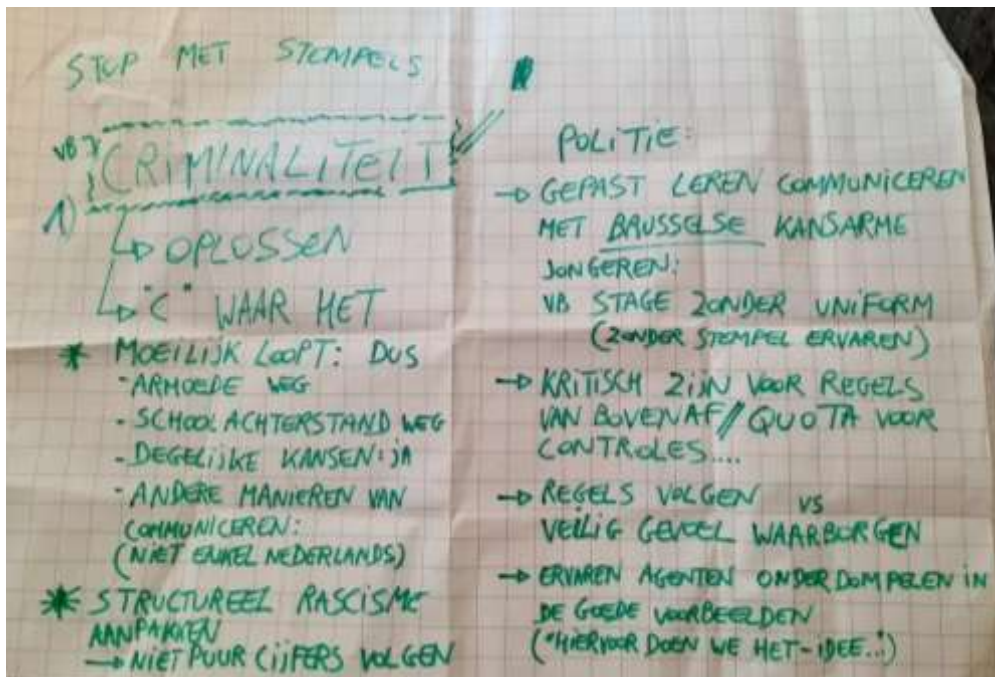 STOP MET STEMPELS
VB
CRIMINALITEIT
1)
↳ OPLOSSEN
↳ "C" WAAR HET
* MOEILIJK LOOPT: DUS
- ARMOEDE WEG
- SCHOOLACHTERSTAND WEG
- DEGELIJKE KANSEN: JA
- ANDERE MANIEREN VAN
COMMUNICEREN:
(NIET ENKEL NEDERLANDS)
* STRUCTUREEL RASCISME
AANPAKKEN
→ NIET PUUR CIJFERS VOLGEN
POLITIE:
→ GEPAST LEREN COMMUNICEREN
MET BRUSSELSE KANSARME
JONGEREN:
VB STAGE ZONDER UNIFORM
(ZONDER STEMPEL ERVAREN)
→ KRITISCH ZIJN VOOR REGELS
VAN BOVENAF // QUOTA VOOR
CONTROLES....
→ REGELS VOLGEN vs
VEILIG GEVOEL WAARBORGEN
→ ERVAREN AGENTEN ONDERDOMPELEN IN
DE GOEDE VOORBEELDEN
("HIERVOOR DOEN WE HET-IDEE..")